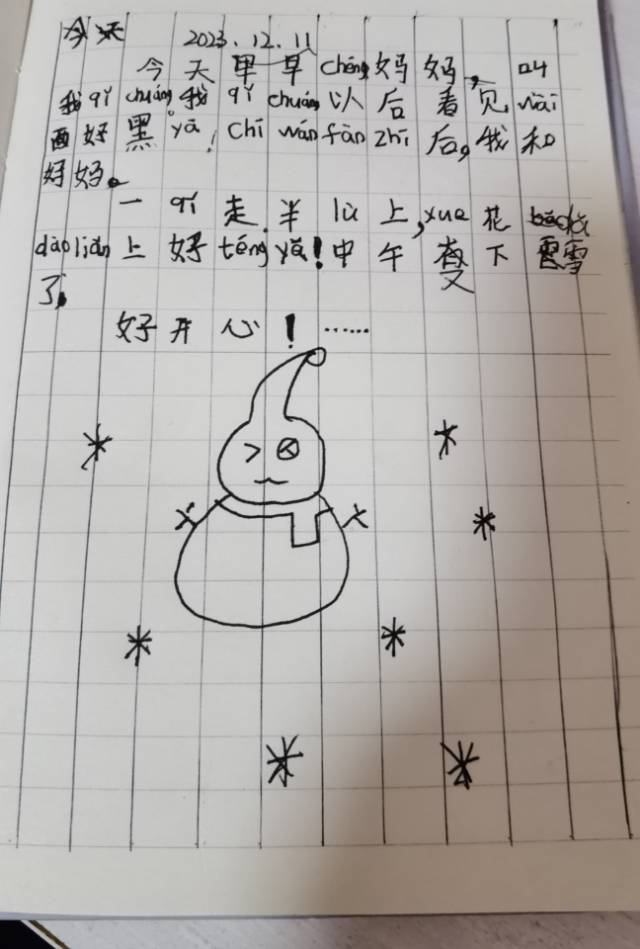 今天 2023.12.11
今天早早chén,妈妈,叫
我qǐ chuáng,我qǐ chuáng以后看见wài
面好黑yā!Chī wán fàn zhī后,我和
好妈。
一qǐ走,半lù上,xue花
dào liǎn上好téng yā!中午又下雪
了,
好开心!……